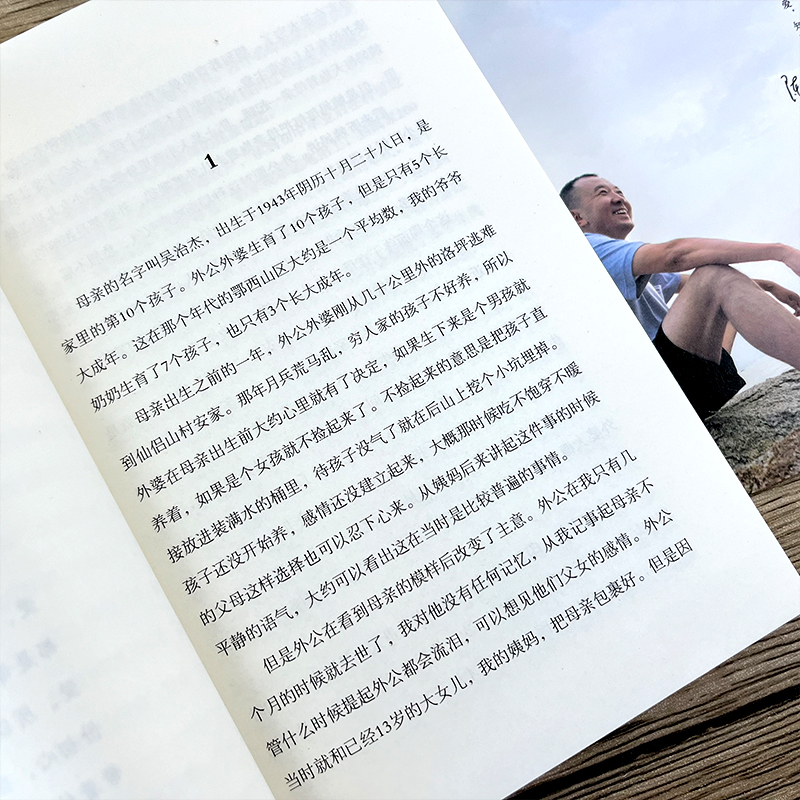 1
母亲的名字叫吴治杰，出生于1943年阴历十月二十八日，是
家里的第10个孩子。外公外婆生育了10个孩子，但是只有5个长
大成年。这在那个年代的鄂西山区大约是一个平均数，我的爷爷
奶奶生育了7个孩子，也只有3个长大成年。
母亲出生之前的一年，外公外婆刚从几十公里外的洛坪逃难
到仙侣山村安家。那年月兵荒马乱，穷人家的孩子不好养，所以
外婆在母亲出生前大约心里就有了决定，如果生下来是个男孩就
养着，如果是个女孩就不捡起来了。不捡起来的意思是把孩子直
接放进装满水的桶里，待孩子没气了就在后山上挖个小坑埋掉。
孩子还没开始养，感情还没建立起来，大概那时候吃不饱穿不暖
的父母这样选择也可以忍下心来。从姨妈后来讲起这件事的时候
平静的语气，大约可以看出这在当时是比较普遍的事情。
但是外公在看到母亲的模样后改变了主意。外公在我只有几
个月的时候就去世了，我对他没有任何记忆，从我记事起母亲不
管什么时候提起外公都会流泪，可以想见他们父女的感情。外公
当时就和已经13岁的大女儿，我的姨妈，把母亲包裹好。但是因